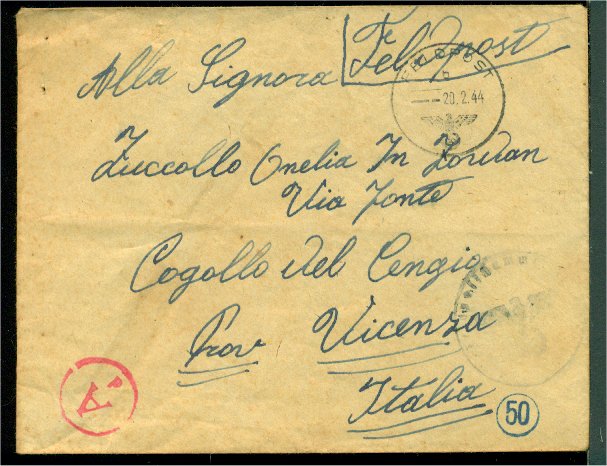 Feldpost
FELDPOST
b
20.2.44
Alla Signora
Zuccollo Onelia In Zordan
Via Fonte
Cogollo del Cengio
Prov Vicenza
Italia
A
50